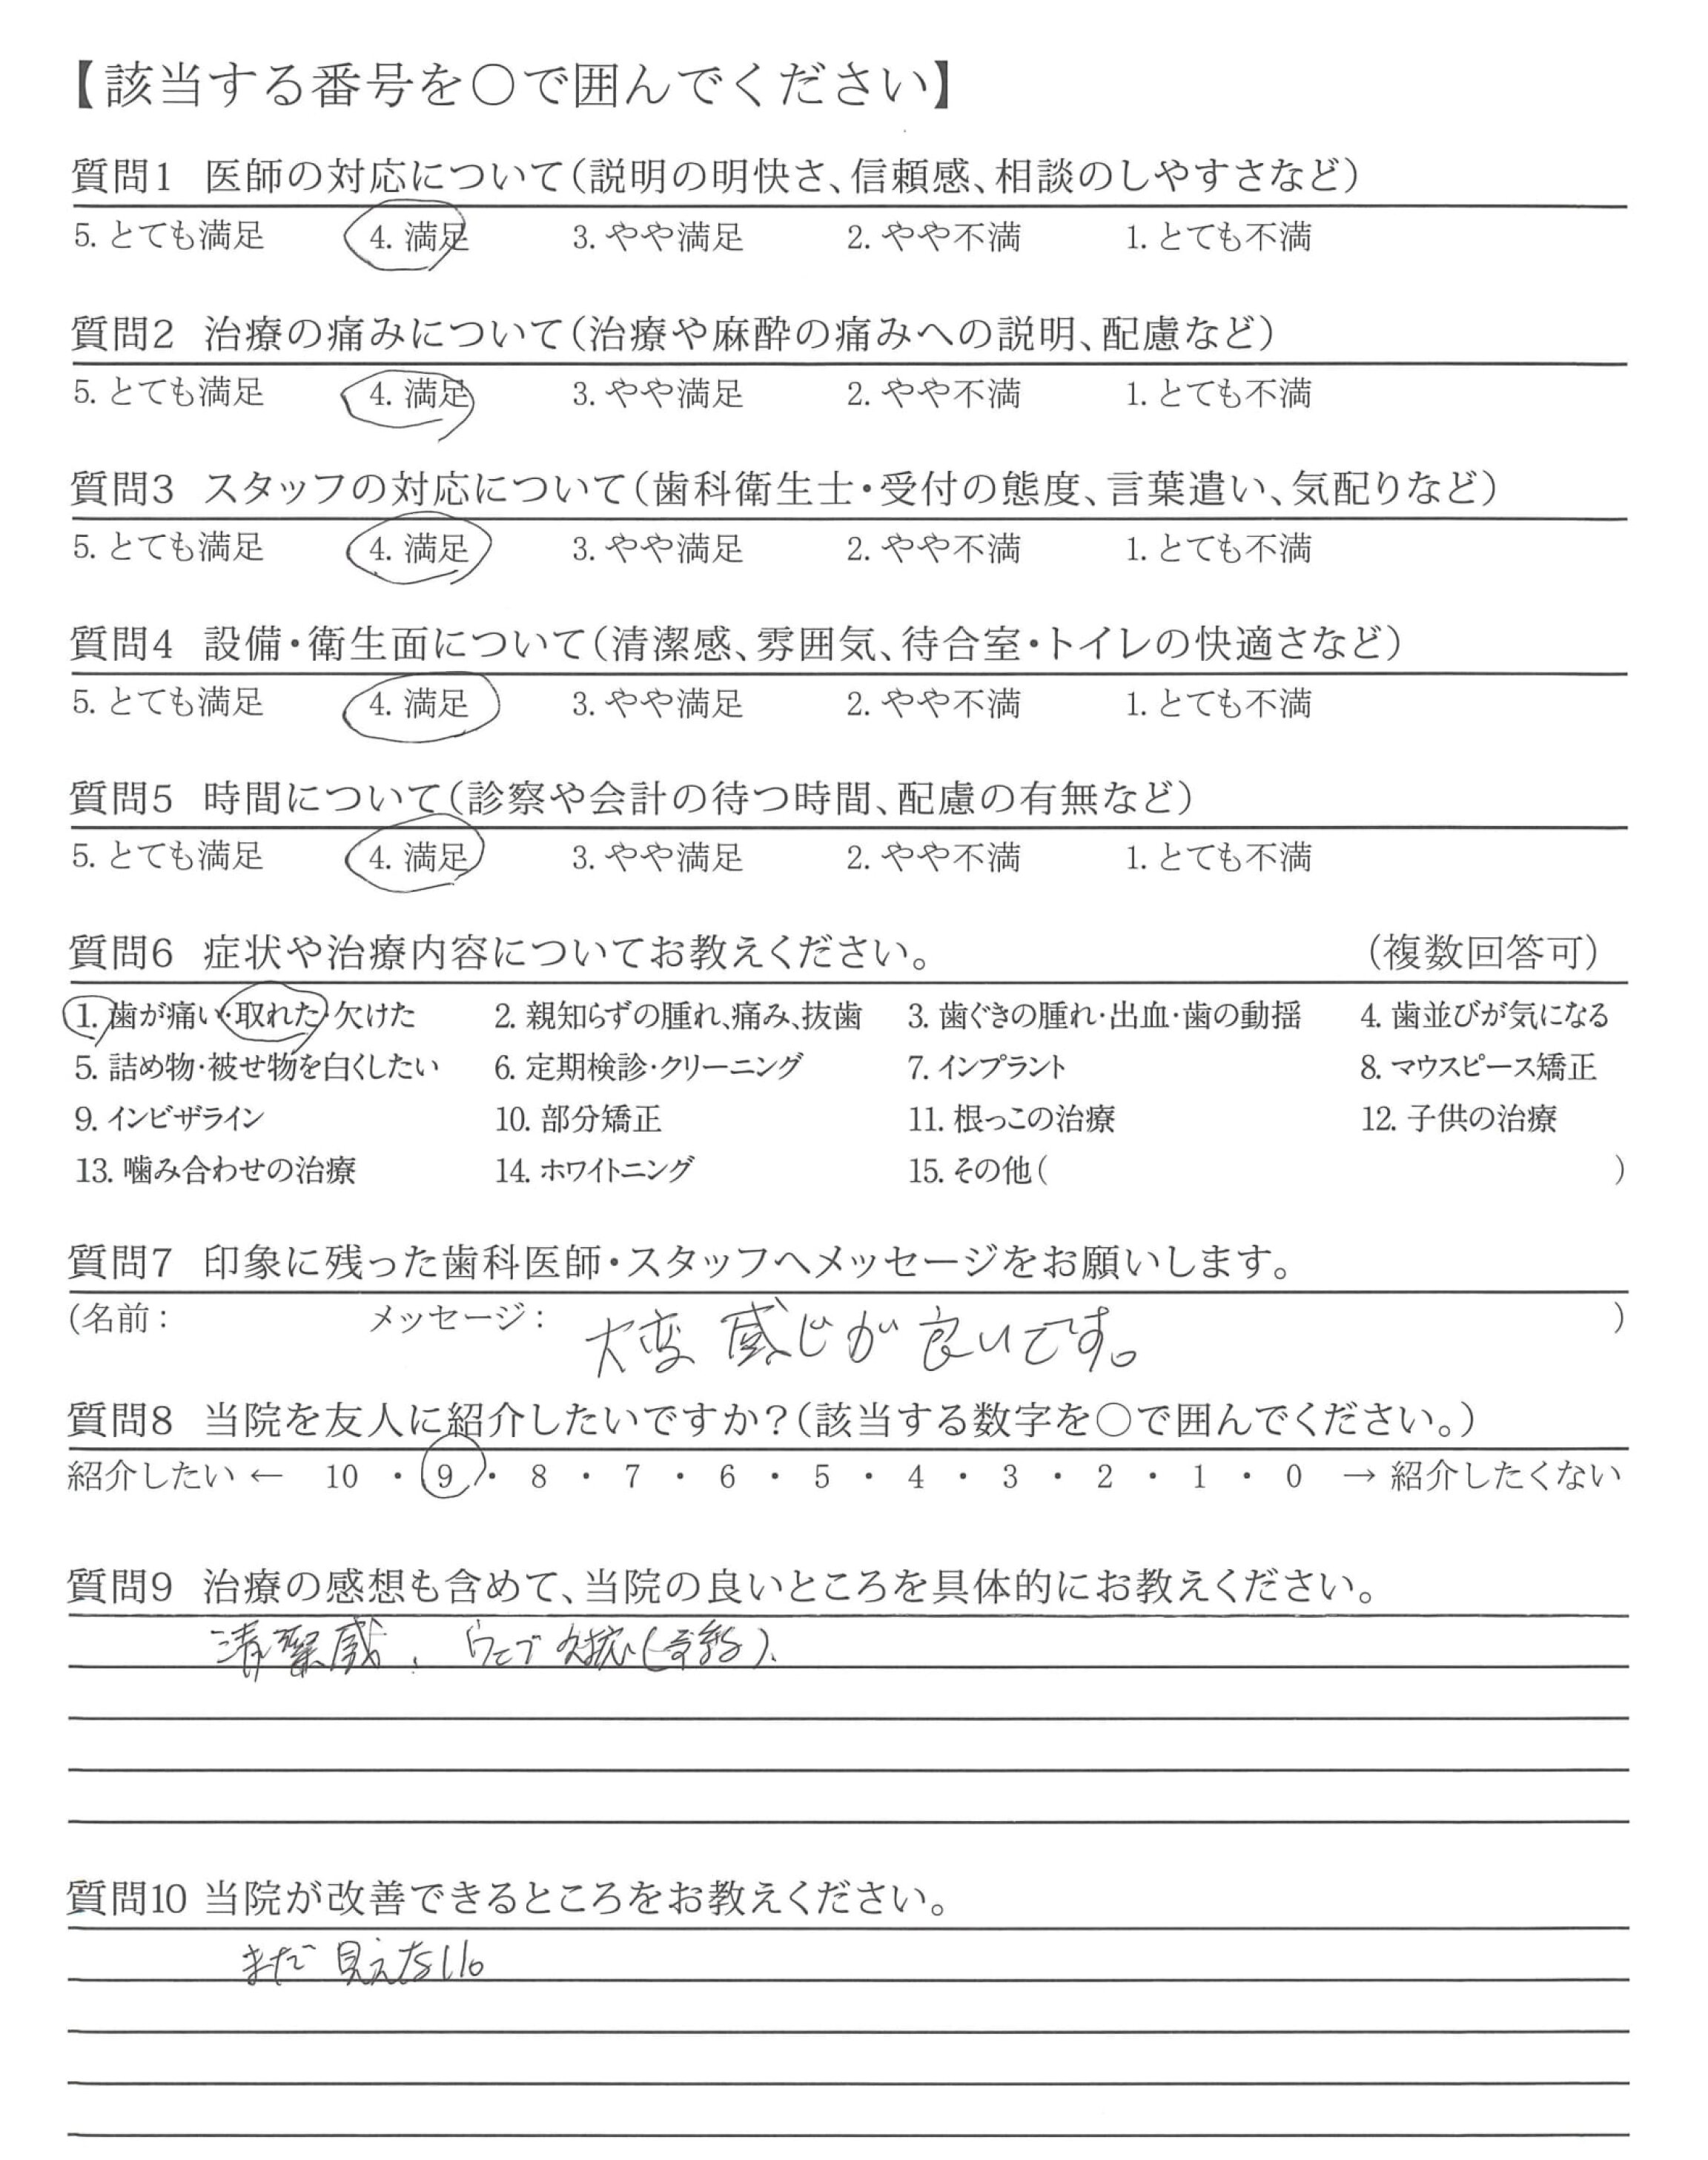 【該当する番号を○で囲んでください】
質問1 医師の対応について(説明の明快さ、信頼感、相談のしやすさなど)
5. とても満足 4. 満足 3. やや満足 2. やや不満 1. とても不満
質問2 治療の痛みについて(治療や麻酔の痛みへの説明、配慮など)
5. とても満足 4. 満足 3. やや満足 2. やや不満 1. とても不満
質問3 スタッフの対応について(歯科衛生士・受付の態度、言葉遣い、気配りなど)
5. とても満足 4. 満足 3. やや満足 2. やや不満 1. とても不満
質問4 設備・衛生面について(清潔感、雰囲気、待合室・トイレの快適さなど)
5. とても満足 4. 満足 3. やや満足 2. やや不満 1. とても不満
質問5 時間について(診察や会計の待つ時間、配慮の有無など)
5. とても満足 4. 満足 3. やや満足 2. やや不満 1. とても不満
質問6 症状や治療内容についてお教えください。 (複数回答可)
1. 歯が痛い・取れた・欠けた 2. 親知らずの腫れ、痛み、抜歯 3. 歯ぐきの腫れ・出血・歯の動揺 4. 歯並びが気になる
5. 詰め物・被せ物を白くしたい 6. 定期検診・クリーニング 7. インプラント 8. マウスピース矯正
9. インビザライン 10. 部分矯正 11. 根っこの治療 12. 子供の治療
13. 噛み合わせの治療 14. ホワイトニング 15. その他( )
質問7 印象に残った歯科医師・スタッフへメッセージをお願いします。
(名前: メッセージ: 大変 感じが 良いです。 )
質問8 当院を友人に紹介したいですか?(該当する数字を○で囲んでください。)
紹介したい ← 10 ・ 9 ・ 8 ・ 7 ・ 6 ・ 5 ・ 4 ・ 3 ・ 2 ・ 1 ・ 0 → 紹介したくない
質問9 治療の感想も含めて、当院の良いところを具体的にお教えください。
清潔感、ウェブ 対応(予約)、
質問10 当院が改善できるところをお教えください。
まだ 見えない。